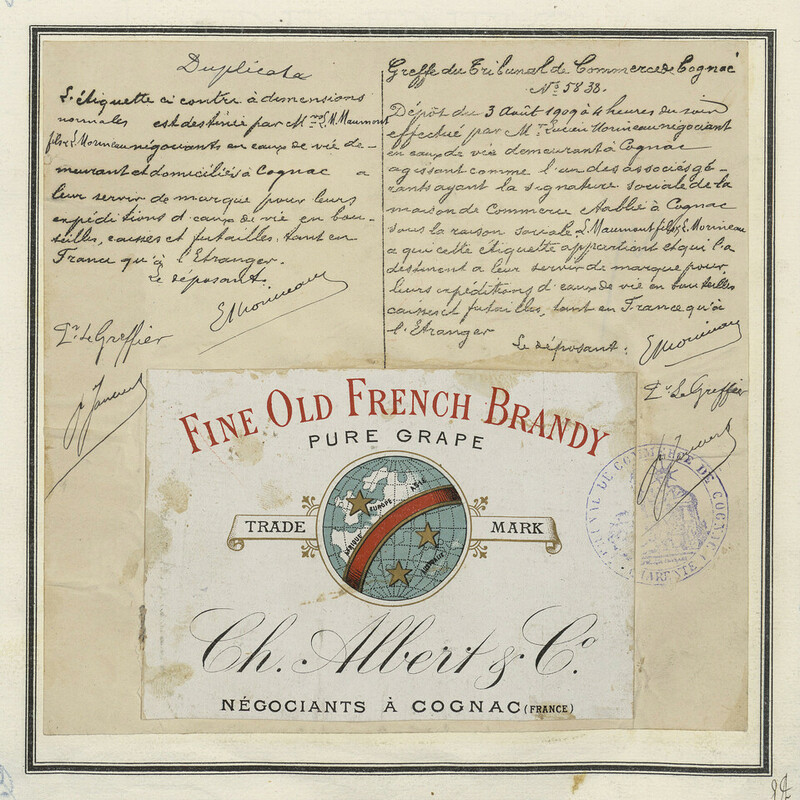 Duplicata
L'étiquette ci contre à dimensions
normales est destinée par M L. Maumont
fils & L. Morineau négociants en eaux de vie de-
meurant et domiciliés à Cognac a
leur servir de marque pour leurs
expéditions d'eaux de vie en bou-
teilles, caisses et futailles, tant en
France qu'à l'Etranger.
Le déposant.
Pr. Le Greffier
Greffe du Tribunal de Commerce de Cognac
No 5838.
Dépôt du 3 Août 1909 à 4 heures du soir
effectué par Mr Lucien Morineau négociant
en eaux de vie demeurant à Cognac
agissant comme l'un des associés gé-
rants ayant la signature sociale de la
maison de Commerce établie à Cognac
sous la raison sociale L. Maumont fils & L. Morineau
a qui cette étiquette appartient et qui l'a
destinent a leur servir de marque pour
leurs expéditions d'eaux de vie en bouteilles
caisses et futailles, tant en France qu'à
l'Etranger
Le déposant:
Pr. Le Greffier
FINE OLD FRENCH BRANDY
PURE GRAPE
TRADE MARK
EUROPE
ASIE
AFRIQUE
Ch. Albert & Co.
NÉGOCIANTS À COGNAC (FRANCE)
TRIBUNAL DE COMMERCE DE COGNAC
CHARENTE